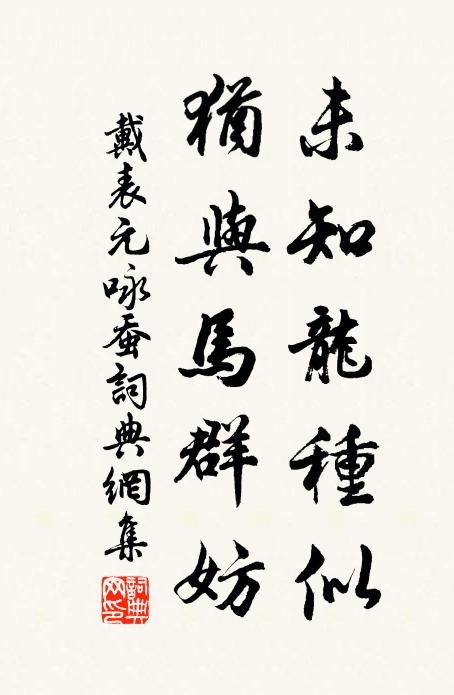 未知龍種似
猶與馬群妨
戴表元咏蚕詞典網集
詞典网印